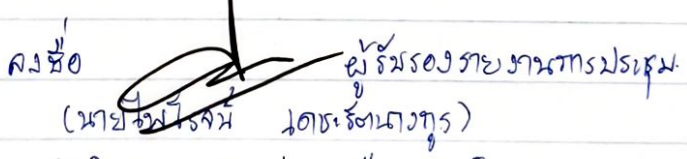 ลงชื่อ ผู้รับรองรายงานการประชุม
(นายไพโรจน์ เดชะรัตนางกูร)